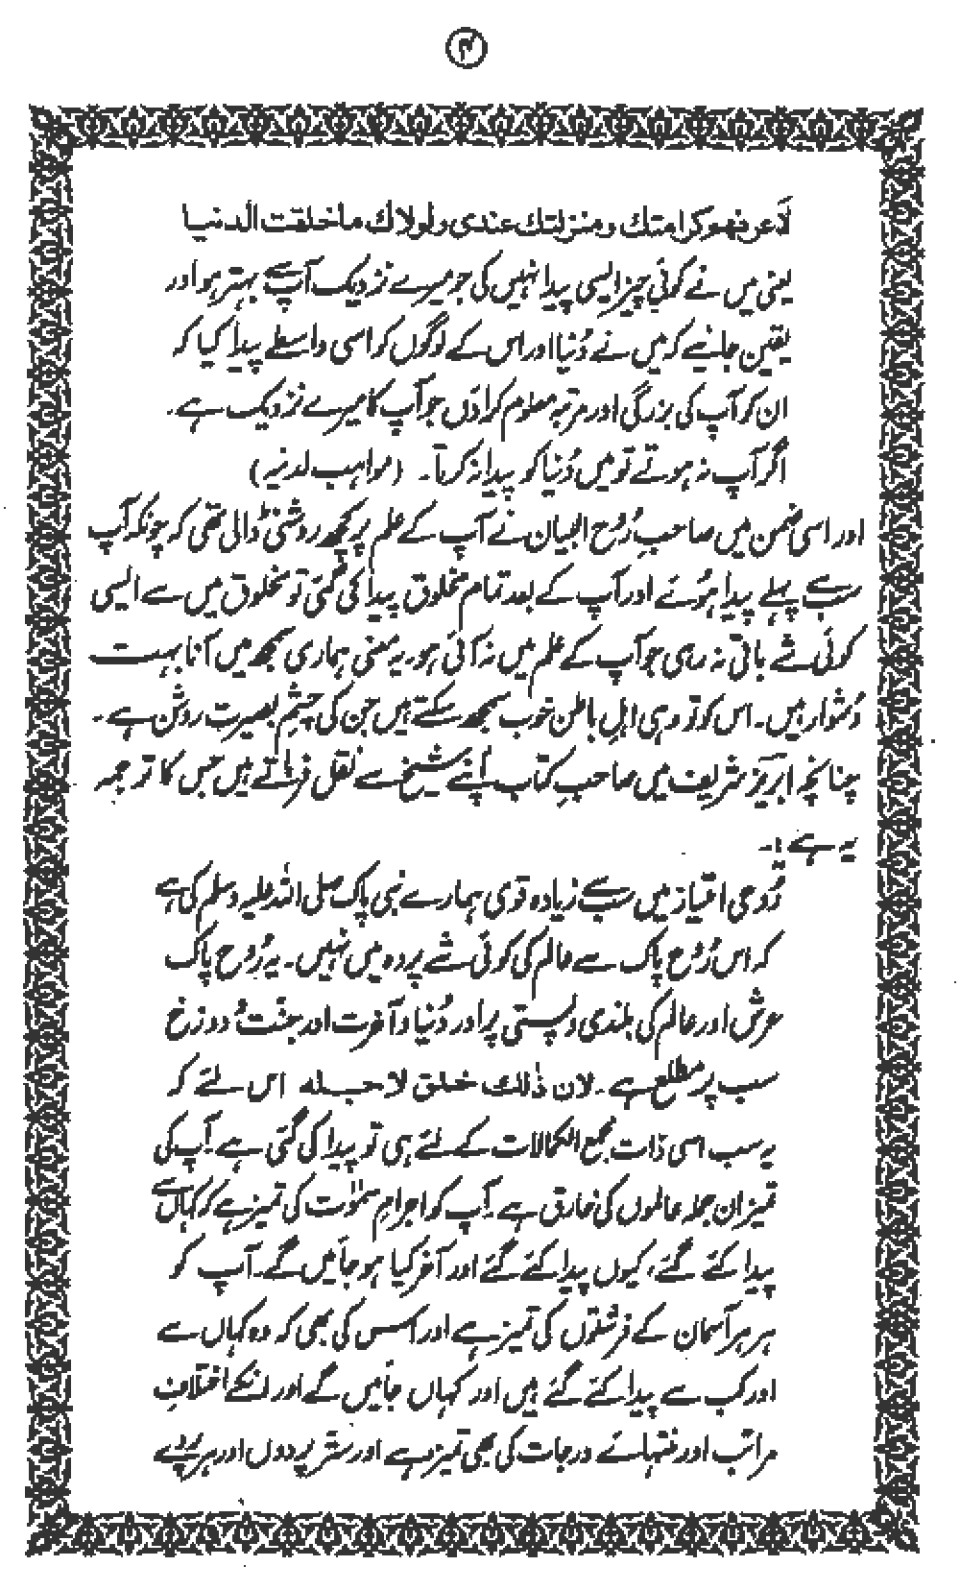 ۴
لاعرفهم كرامتك ومنزلتك عندى ولولاك ماخلقت الدنيا
یعنی میں نے کوئی چیز ایسی پیدا نہیں کی جو میرے نزدیک آپ سے بہتر ہو اور
یقین جانیے کہ میں نے دُنیا اور اس کے لوگوں کو اسی واسطے پیدا کیا کہ
ان کو آپ کی بزرگی اور مرتبہ معلوم کراؤں جو آپ کا میرے نزدیک ہے۔
اگر آپ نہ ہوتے تو میں دُنیا کو پیدا نہ کرتا۔ (مواہب لدنیہ)
اور اسی ضمن میں صاحبِ رُوح البیان نے آپ کے علم پر کچھ روشنی ڈالی تھی کہ چونکہ آپ
سب سے پہلے پیدا ہُوئے اور آپ کے بعد تمام مخلوق پیدا کی گئی تو مخلوق میں سے ایسی
کوئی شے باقی نہ رہی جو آپ کے علم میں نہ آئی ہو۔ یہ معنی ہماری سمجھ میں آنا بہت
دُشوار ہیں۔ اس کو تو وہی اہلِ باطن خوب سمجھ سکتے ہیں جن کی چشمِ بصیرت روشن ہے۔
چنانچہ ابریز شریف میں صاحبِ کتاب اپنے شیخ سے نقل فرماتے ہیں جس کا ترجمہ
یہ ہے:۔
رُوحی امتیاز میں سب سے زیادہ قوی ہمارے نبی پاک صلی اللہ علیہ وسلم کی ہے
کہ اس رُوح پاک سے عالم کی کوئی شے پردہ میں نہیں۔ یہ رُوح پاک
عرش اور عالم کی بلندی و پستی پر اور دُنیا و آخرت اور جنّت و دوزخ
سب پر مطلع ہے۔ لان ذٰلك خلق لاجله اس لئے کہ
یہ سب اسی ذات مجمع الکمالات کے لئے ہی تو پیدا کی گئی ہے۔ آپ کی
تمیز ان جملہ عالموں کی خارق ہے۔ آپ کو اجرامِ سمٰوٰت کی تمیز ہے کہ کہاں سے
پیدا کئے گئے، کیوں پیدا کئے گئے اور آخر کیا ہو جائیں گے۔ آپ کو
ہر ہر آسمان کے فرشتوں کی تمیز ہے اور اس کی بھی کہ وہ کہاں سے
اور کب سے پیدا کئے گئے ہیں اور کہاں جائیں گے اور انکے اختلافِ
مراتب اور منتہائے درجات کی بھی تمیز ہے اور ستر پردوں اور ہر پردے